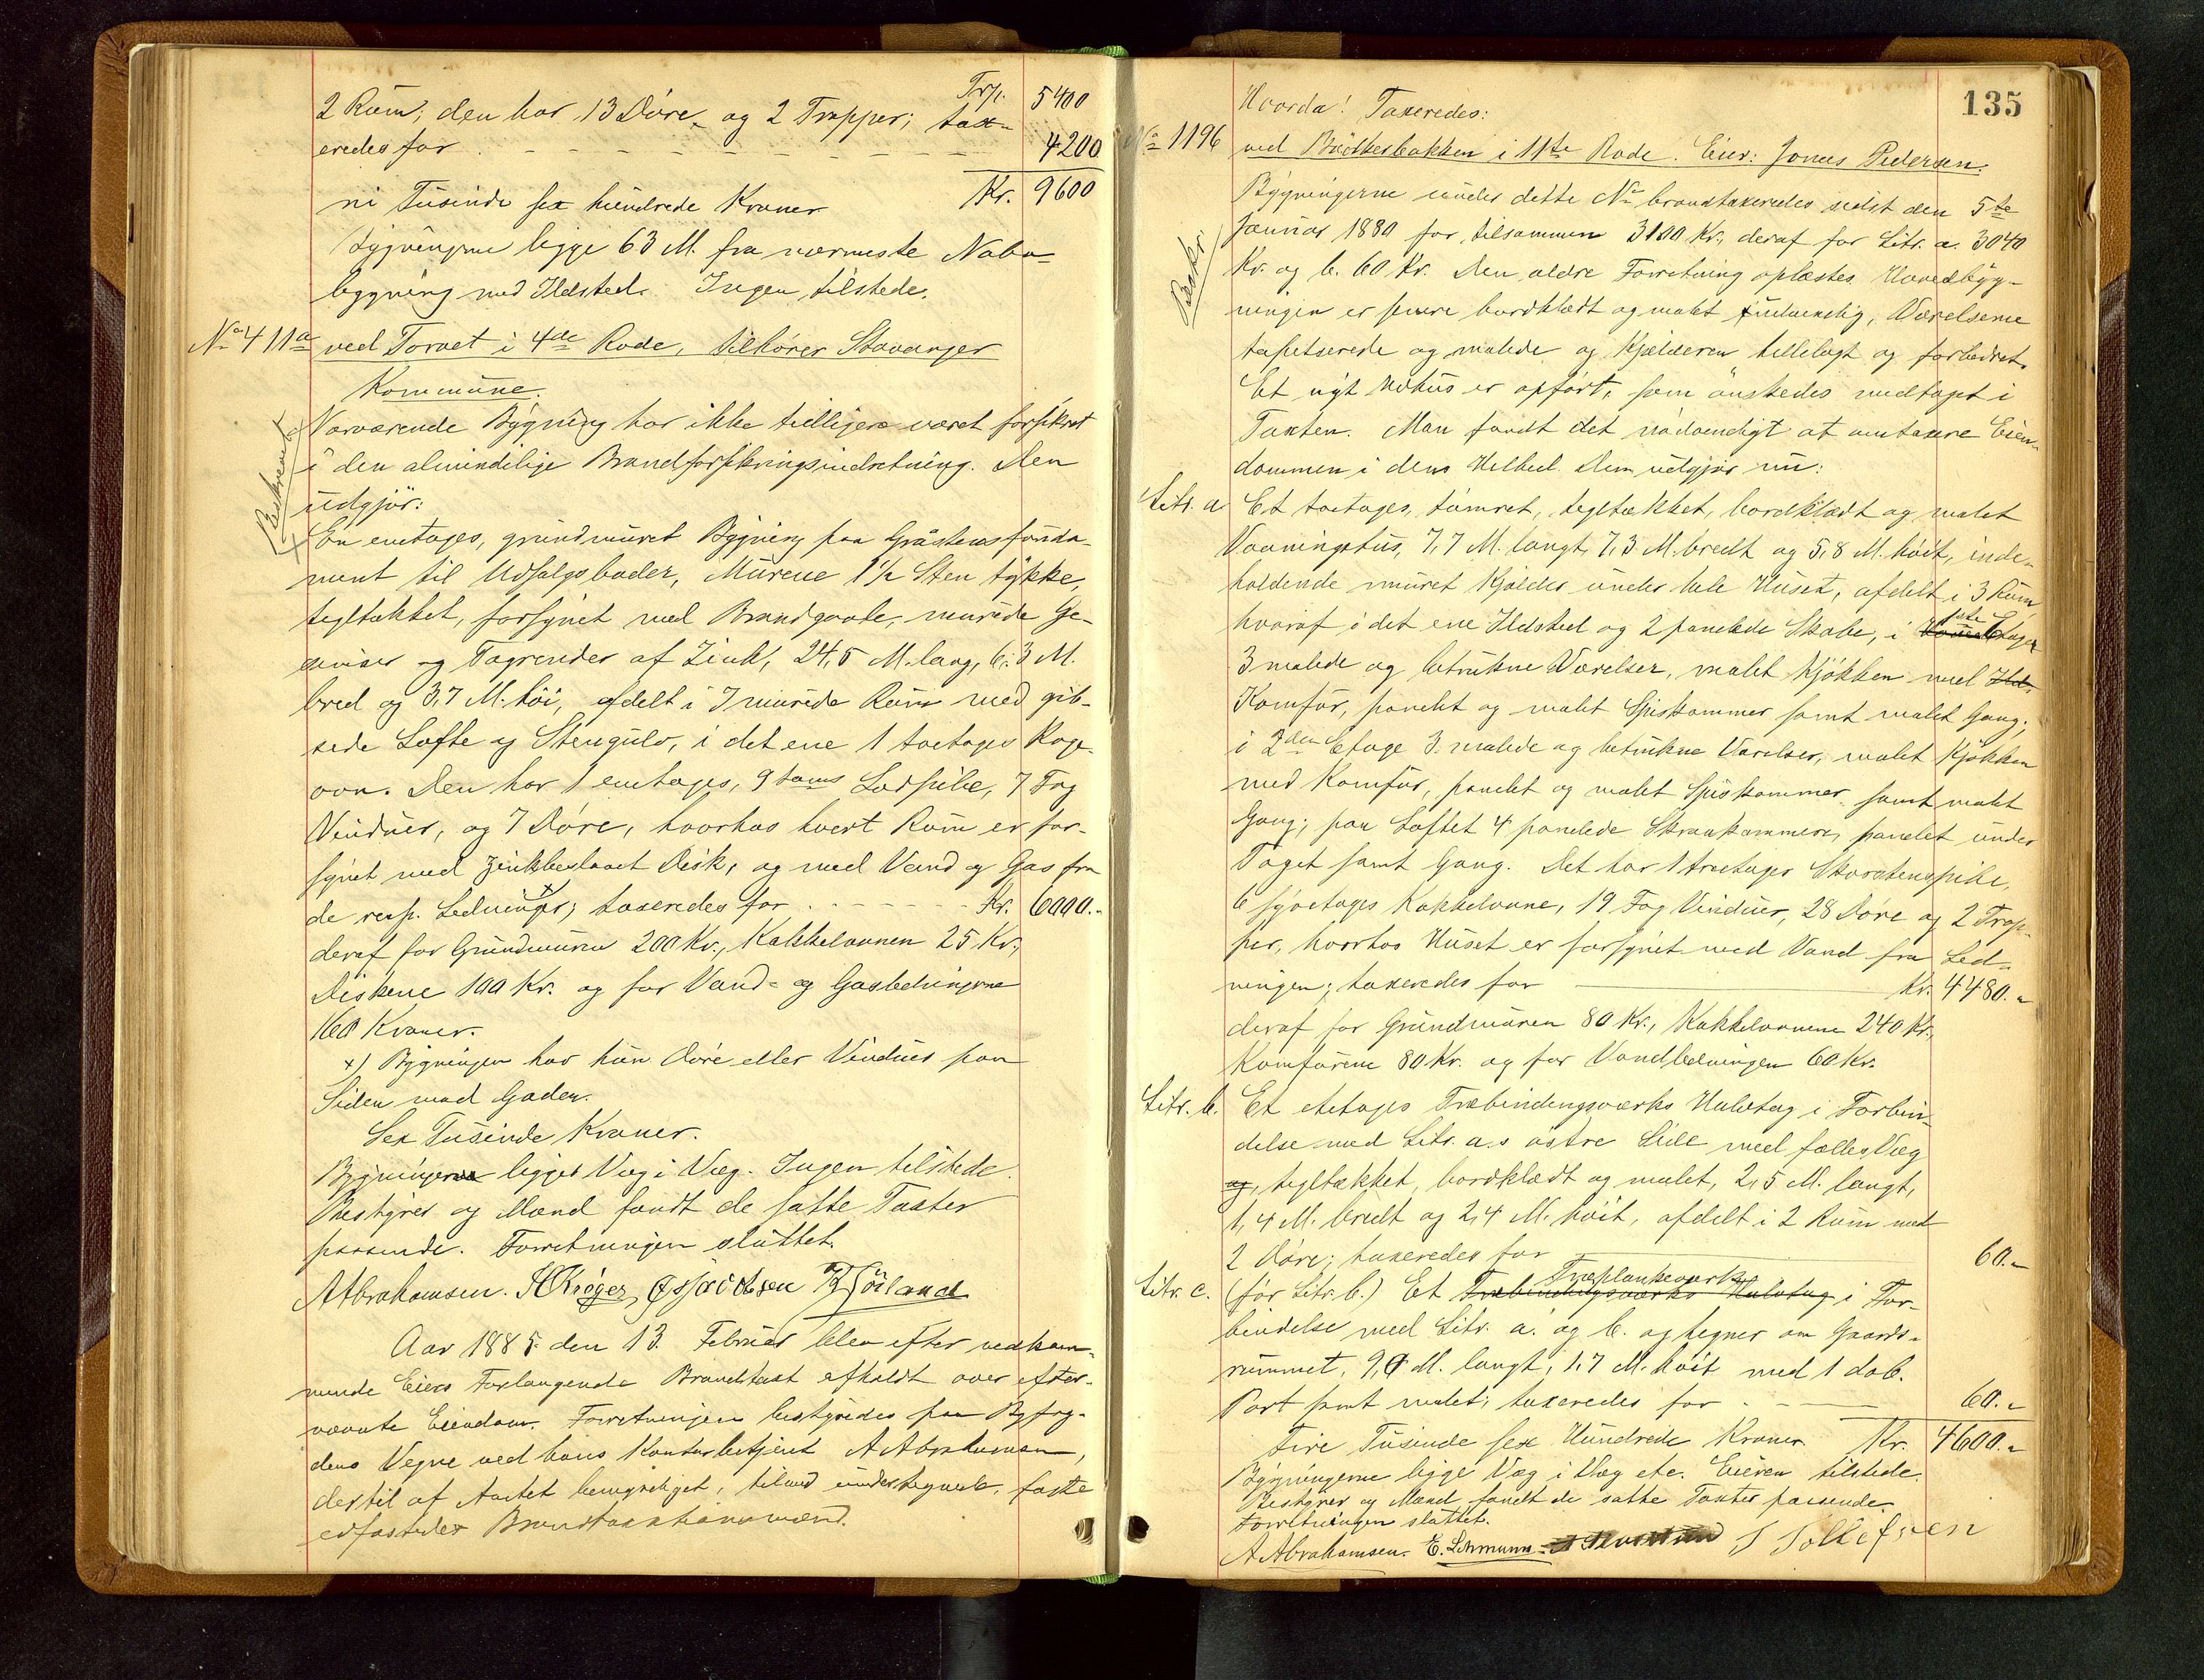 Trp. 5400
2 Rum; den har 13 Döre, og 2 Trapper; tax-
eredes for 4200
ni Tusinde sex hundrede Kroner Kr. 9600
Bygningerne ligge 63 M. fra nærmeste Nabo-
bygning med Ildsted. Ingen tilstede.
No 411a ved Torvet i 4de Rode, tilhører Stavanger
Kommune.
Beskrevet
Nærværende Bygning har ikke tidligere været forsikret
i den almindelige Brandforsikringsindretning. Den
udgjör:
En enetages, grundmuret Bygning paa Gråstensfunda-
ment til Udsalgsboder, Murene 1½ Sten tykke,
tegltækket, forsynet med Brandgavle, murede Ge-
simser og Tagrender af Zink, 24,5 M. lang, 6,3 M.
bred og 3,7 M. höi, afdelt i 7 murede Rum med gib-
sede Lofte og Stengulv, i det ene 1 toetages Koge-
ovn. Den har 1 enetages, 9 toms Lodpibe, 7 Fag
Vinduer, og 7 Döre, hvorhos hvert Rum er for-
synet med Zinkbeslaaet Disk, og med Vand og Gas fra
de resp. Ledninger; x taxeredes for Kr. 6000.-
deraf for Grundmuren 200 Kr., Kakkelovnen 25 Kr.,
Diskene 100 Kr. og for Vand- og Gasledningerne
160 Kroner.
x) Bygningen har kun Döre eller Vinduer paa
Siden mod Gaden.
Sex Tusinde Kroner.
Bygningerne ligger Væg i Væg. Ingen tilstede.
Bestyrer og Mænd fandt de satte Taxter
passende. Forretningen sluttet.
AAbrahamsen. HKröger, Jacobsen
Aar 1885 den 13. Februar blev efter vedkom-
mende Eiers Forlangende Brandtaxt afholdt over efter-
nævnte Eiendom. Forretningen bestyredes paa Byfog-
dens Vegne ved hans Kontorbetjent AAbrahamsen,
dertil af Amtet bemyndiget, tilmed undertegnede, faste
edfæstede Brandtaxtationsmænd.
135
Hvorda! Taxeredes:
No 1196 ved Bödkerbakken i 11te Rode. Eier: Jonas Pedersen.
Beskr.
Bygningerne under dette No brandtaxeredes sidst den 5te
Januar 1880 for tilsammen 3100 Kr., deraf for Litr. a. 3040
Kr. og b. 60 Kr. Den ældre Forretning oplæstes. Hovedbyg-
ningen er senere bordklædt og malet udvendig, Værelserne
tapetserede og malede og Kjælderen hellelagt og forbedret.
Et nyt Udhus er opfört, som önskedes medtaget i
Taxten. Man fandt det nödvendigt at omtaxere Eien-
dommen i dens Helhed. Den udgjör nu:
Litr. a Et toetages, tömret, tegltækket, bordklædt og malet
Vaaningshus, 7,7 M. langt, 7,3 M. bredt og 5,8 M. höit, inde-
holdende muret Kjælder under hele Huset, afdelt i 3 Rum,
hvoraf i det ene Ildsted og 2 panelede Skabe, i 1ste Etage
3 malede og betrukne Værelser, malet Kjökken med Ild.
Komfur, panelet og malet Spiskammer samt malet Gang;
i 2den Etage 3 malede og betrukne Værelser, malet Kjökken
med Komfur, panelet og malet Spiskammer samt malet
Gang; paa Loftet 4 panelede Skraakammere, panelet under
Taget samt Gang. Det har 1 treetages Skorstenspibe,
6 Kakkelovne, 19 Fag Vinduer, 28 Döre og 2 Trap-
per, hvorhos Huset er forsynet med Vand fra Led-
ningen; taxeredes for Kr. 4480.-
deraf for Grundmuren 80 Kr., Kakkelovnene 240 Kr.,
Komfurene 80 Kr. og for Vandledningen 60 Kr.
Litr. b. Et etetages Træbindingsværks Halvtag i Forbin-
delse med Litr. a.s östre Side med fælles Væg
og, tegltækket, bordklædt og malet, 2,5 M. langt,
1,4 M. bredt og 2,4 M. höit, afdelt i 2 Rum med
2 Döre; taxeredes for 60.-
Litr. c. (för Litr. b.) Et Træbindingsværks Halvtag Træplankeværk i For-
bindelse med Litr. a. og b. og hegner om Gaards-
rummet, 9,0 M. langt, 1,7 M. höit med 1 dob.
Port samt malet; taxeredes for 60.-
Fire Tusinde sex Hundrede Kroner Kr. 4600.-
Bygningerne ligge Væg i Væg etc. Eieren tilstede.
Bestyrer og Mænd fandt de satte Taxter passende.
Forretningen sluttet.
AAbrahamsen. E. Lehmann T Tollefsen